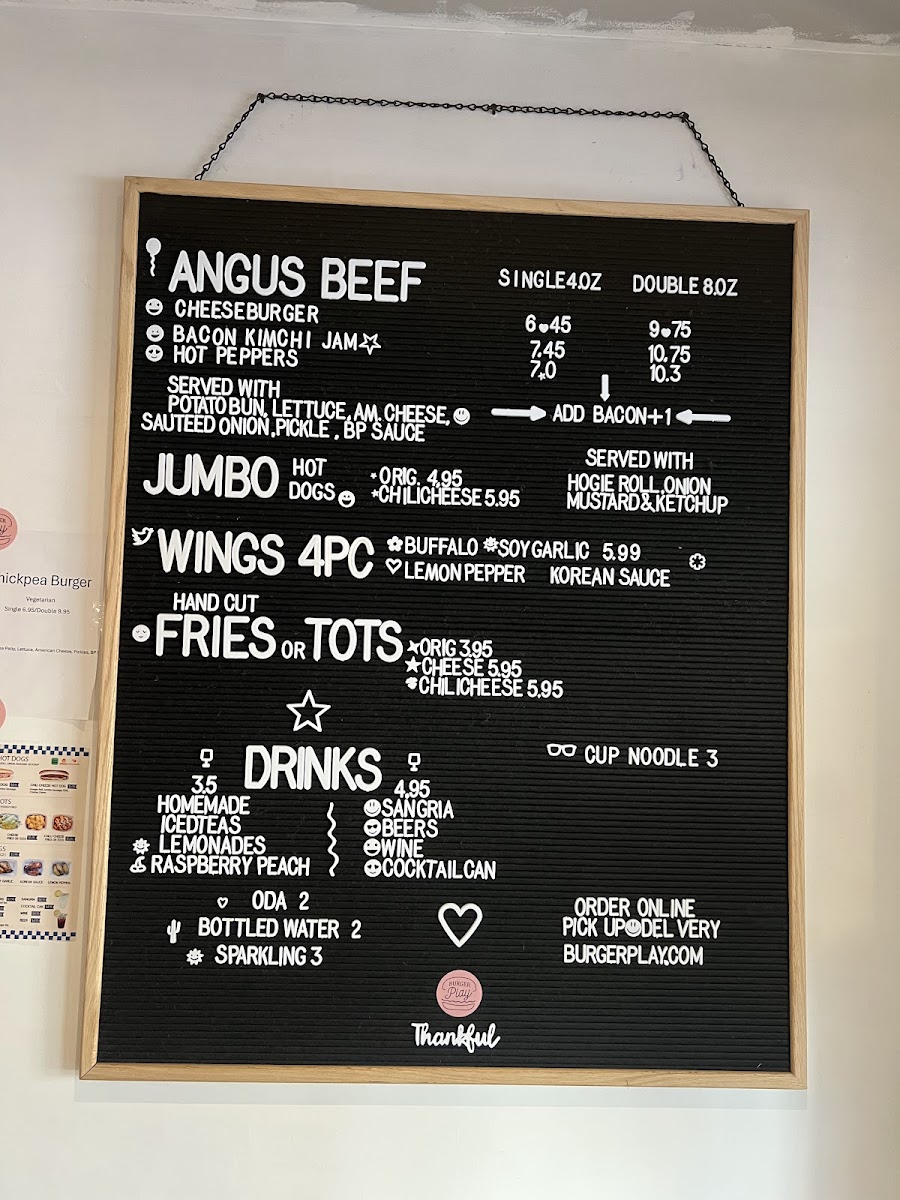 ANGUS BEEF SINGLE 4.OZ DOUBLE 8.OZ
CHEESEBURGER 6 45 9 75
BACON KIMCHI JAM 7.45 10.75
HOT PEPPERS 7. 0 10.3
SERVED WITH
POTATO BUN, LETTUCE, AM. CHEESE,
SAUTEED ONION, PICKLE, BP SAUCE
ADD BACON+1
JUMBO HOT DOGS
ORIG. 4,95
CHILICHEESE 5.95
SERVED WITH
HOGIE ROLL, ONION
MUSTARD&KETCHUP
WINGS 4PC
BUFFALO SOY GARLIC 5.99
LEMON PEPPER KOREAN SAUCE
HAND CUT
FRIES OR TOTS
ORIG 3.95
CHEESE 5.95
CHILICHEESE 5,95
DRINKS
3.5
HOMEMADE
ICED TEAS
LEMONADES
RASPBERRY PEACH
4,95
SANGRIA
BEERS
WINE
COCKTAIL CAN
CUP NOODLE 3
ODA 2
BOTTLED WATER 2
SPARKLING 3
ORDER ONLINE
PICK UP DEL VERY
BURGERPLAY.COM
BURGER
Play
Thankful
hickpea Burger
Vegetarian
Single 6.95/Double 9.95
Lettuce, American Cheese, Pickles, BP
HOT DOGS